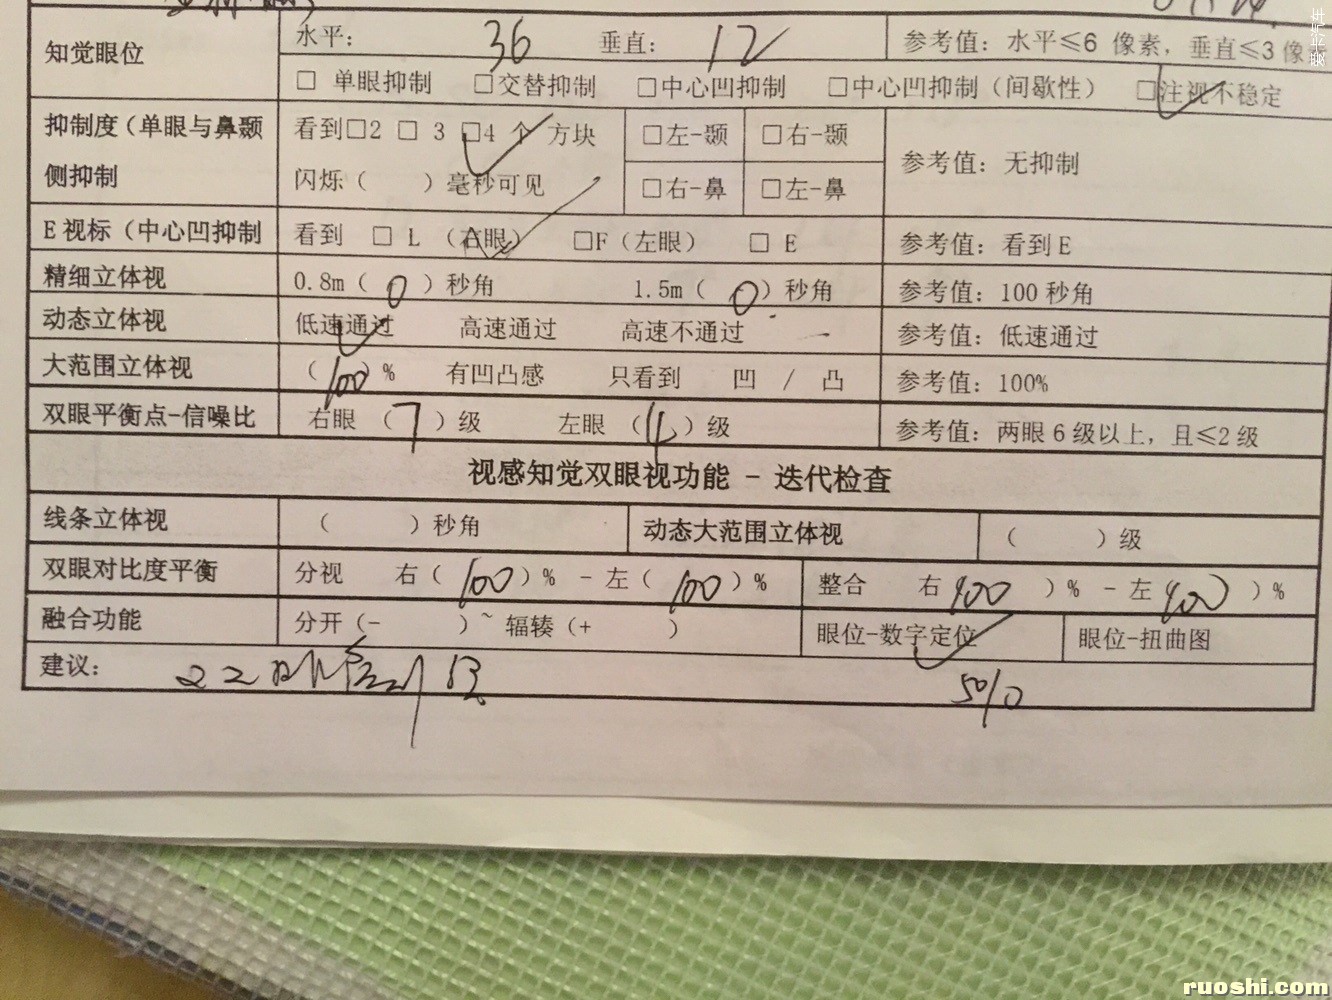 知觉眼位 水平: 36 垂直: 12 参考值: 水平≤6 像素, 垂直≤3 像素
□ 单眼抑制 □交替抑制 □中心凹抑制 □中心凹抑制 (间歇性) □注视不稳定
抑制度 (单眼与鼻颞 看到□2 □ 3 □4 个 方块 □左-颞 □右-颞
侧抑制 闪烁 ( ) 毫秒可见 □右-鼻 □左-鼻 参考值: 无抑制
E 视标 (中心凹抑制 看到 □ L (右眼) □F (左眼) □ E 参考值: 看到 E
精细立体视 0.8m ( 0 ) 秒角 1.5m ( 0 ) 秒角 参考值: 100 秒角
动态立体视 低速通过 高速通过 高速不通过 参考值: 低速通过
大范围立体视 ( 100 ) % 有凹凸感 只看到 凹 / 凸 参考值: 100%
双眼平衡点-信噪比 右眼 ( 7 ) 级 左眼 ( 4 ) 级 参考值: 两眼 6 级以上, 且≤2 级
视感知觉双眼视功能 - 迭代检查
线条立体视 ( ) 秒角 动态大范围立体视 ( ) 级
双眼对比度平衡 分视 右 ( 100 ) % - 左 ( 100 ) % 整合 右 400 ) % - 左 400 ) %
融合功能 分开 (- ) ~ 辐辏 (+ ) 眼位-数字定位 眼位-扭曲图
建议:
50/0
ruoshi.com